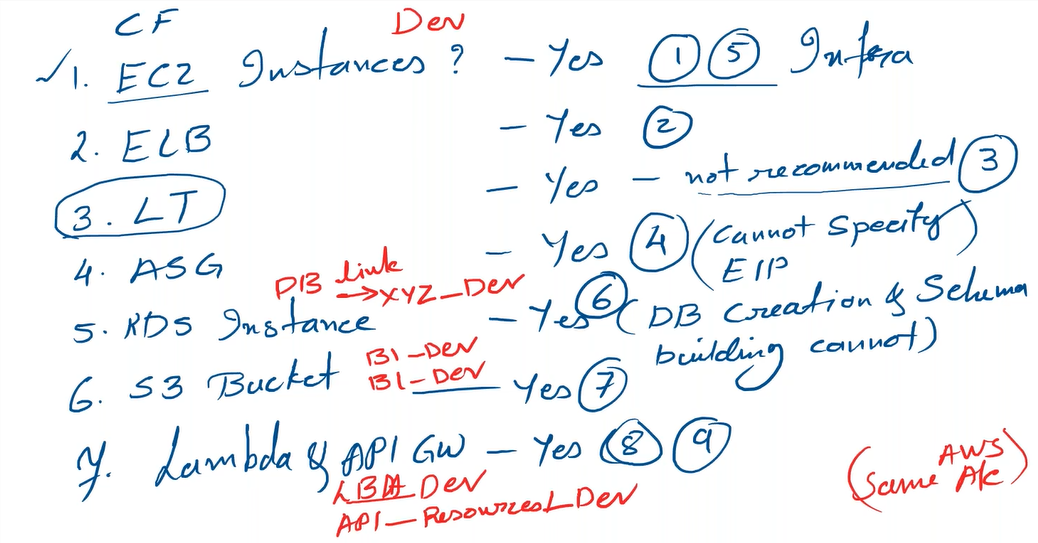 CF
Dev
1. EC2 Instances? - Yes 1 5 Infra
2. ELB - Yes 2
3. LT - Yes - not recommended 3
4. ASG - Yes 4 (Cannot Specify
EIP)
DB link
→ XYZ_Dev
5. RDS Instance - Yes 6 (DB Creation & Schema
building cannot)
B1-Dev
B1-Dev
6. S3 Bucket - Yes 7
7. Lambda & API GW - Yes 8 9
Dev
API-Resources1_Dev
(Same AWS
A/c)